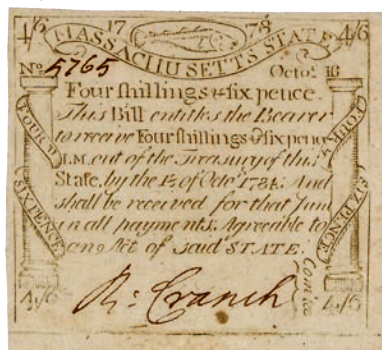 4/6 17 78 4/6
MASSACHUSETTS STATE
No 5765 Octor. 16
Four ſhillings & ſix pence.
This Bill entitles the Bearer
to receive Four ſhillings & ſix pence
L.M. out of the Treaſury of this
State, by the of Octor. 1784. And
shall be received for that Sum
in all payments. Agreeable to
an Act of said STATE.
FOUR SH
SIX PENCE
FOUR SH
SIX PENCE
R: Cranch
Comtee
4/6 4/6